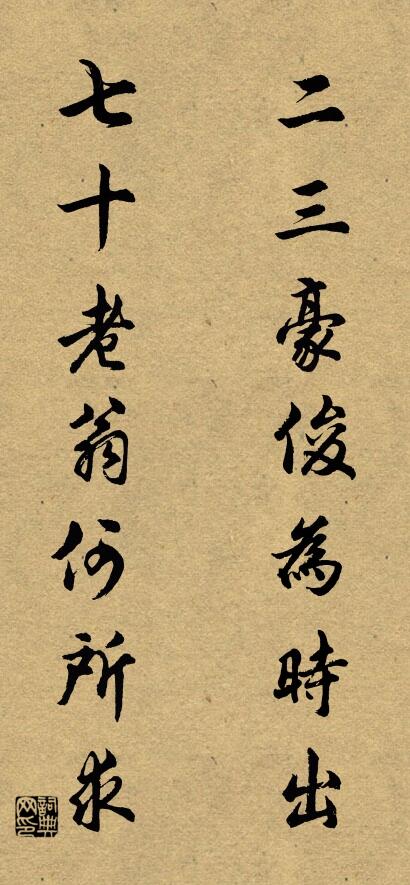 二三豪俊為時出
七十老翁何所求
詞典網印